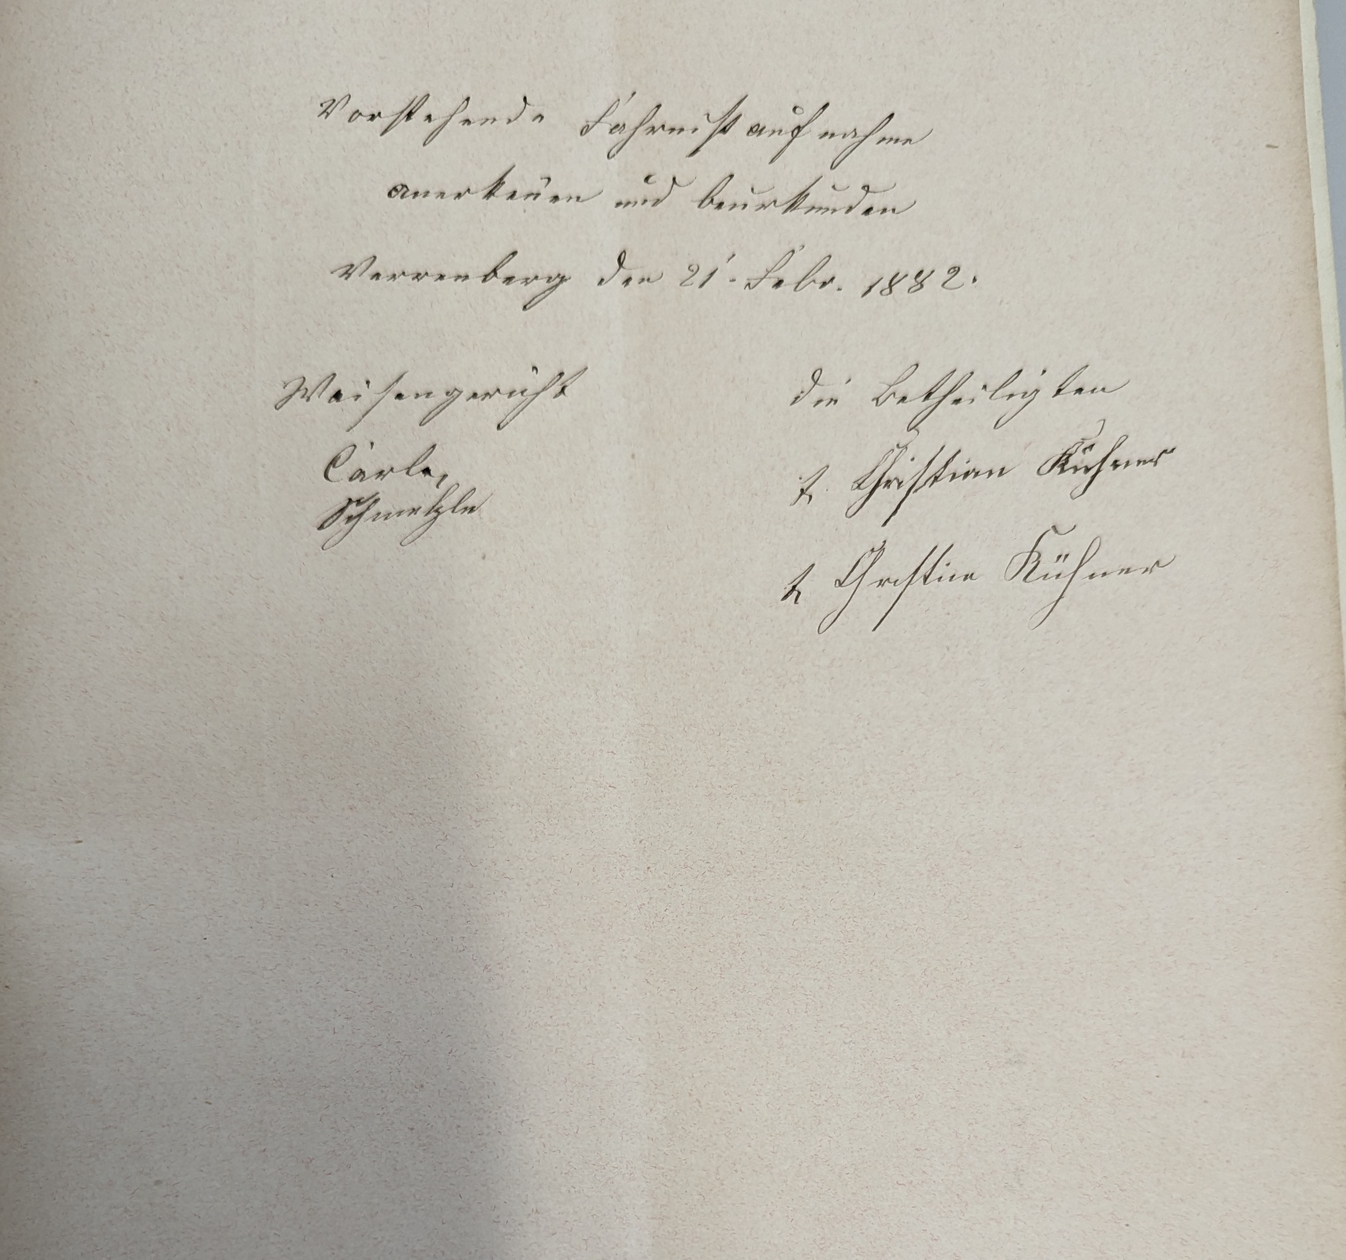 Vorstehende Fahrnißaufnahme
anerkeñen und beurkunden
Verrenberg den 21. Febr. 1882.
Waisengericht
Carle,
Schmetzle
die Betheiligten
t. Christian Kühner
t. Christine Kühner